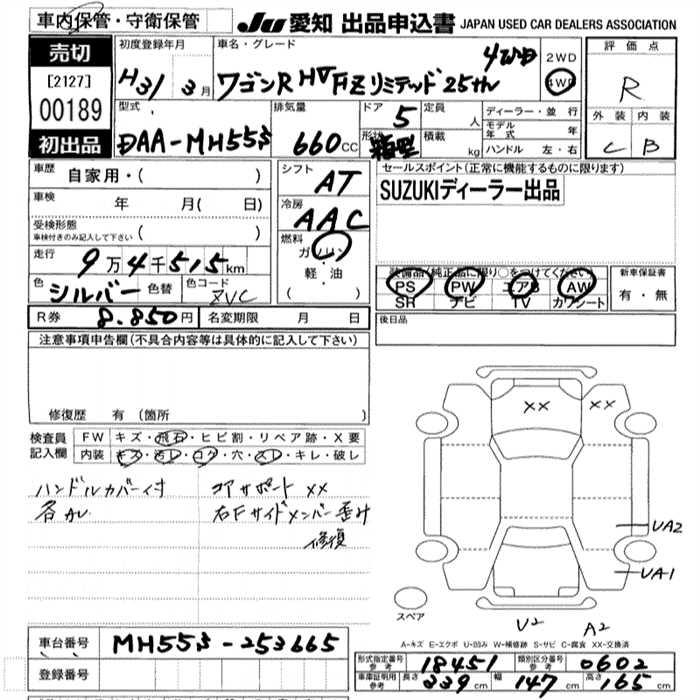 車内保管・守衛保管
JU 愛知 出品申込書 JAPAN USED CAR DEALERS ASSOCIATION
売切
[2127]
00189
初出品
初度登録年月
H31 3月
車名・グレード
ワゴンR HV FZリミテッド 25th 4WD
2WD
4WD
評価点
R
外装 内装
C B
型式
DAA-MH55S
排気量
660cc
ドア 5
形状 箱型
定員 人
積載 kg
ディーラー・並行
モデル年式 年
ハンドル 左・右
車歴 自家用・( )
車検 年 月( 日)
受検形態
車検付きのみ記入して下さい ( )
走行 9万4千515km
色 シルバー 色替 色コード ZVC
シフト AT
冷房 AAC
燃料
ガソリン
軽・油
( )
セールスポイント(正常に機能するものに限ります)
SUZUKIディーラー出品
装備品(純正品に限り○をつけてください)
PS PW エアB AW
SR ナビ TV カワシート
新車保証書
有・無
R券 8.850円 名変期限 月 日
後日品
注意事項申告欄(不具合内容等は具体的に記入して下さい)
修復歴 有(箇所
検査員記入欄
FW キズ・飛石・ヒビ割・リペア跡・X要
内装 キズ・汚レ・コゲ・穴・スレ・キレ・破レ
ハンドルカバー付
コアサポートXX
右Fサイドメンバー歪み
修復
XX XX
UA2
UA1
U2 A2
スペア
A-キズ E-エクボ U-凹み W-補修跡 S-サビ C-腐食 XX-交換済
車台番号 MH55S-253665
登録番号
形式指定番号 参考 18451 類別区分番号 参考 0602
車庫証明用 参考 長さ 339cm 幅 147cm 高さ 165cm